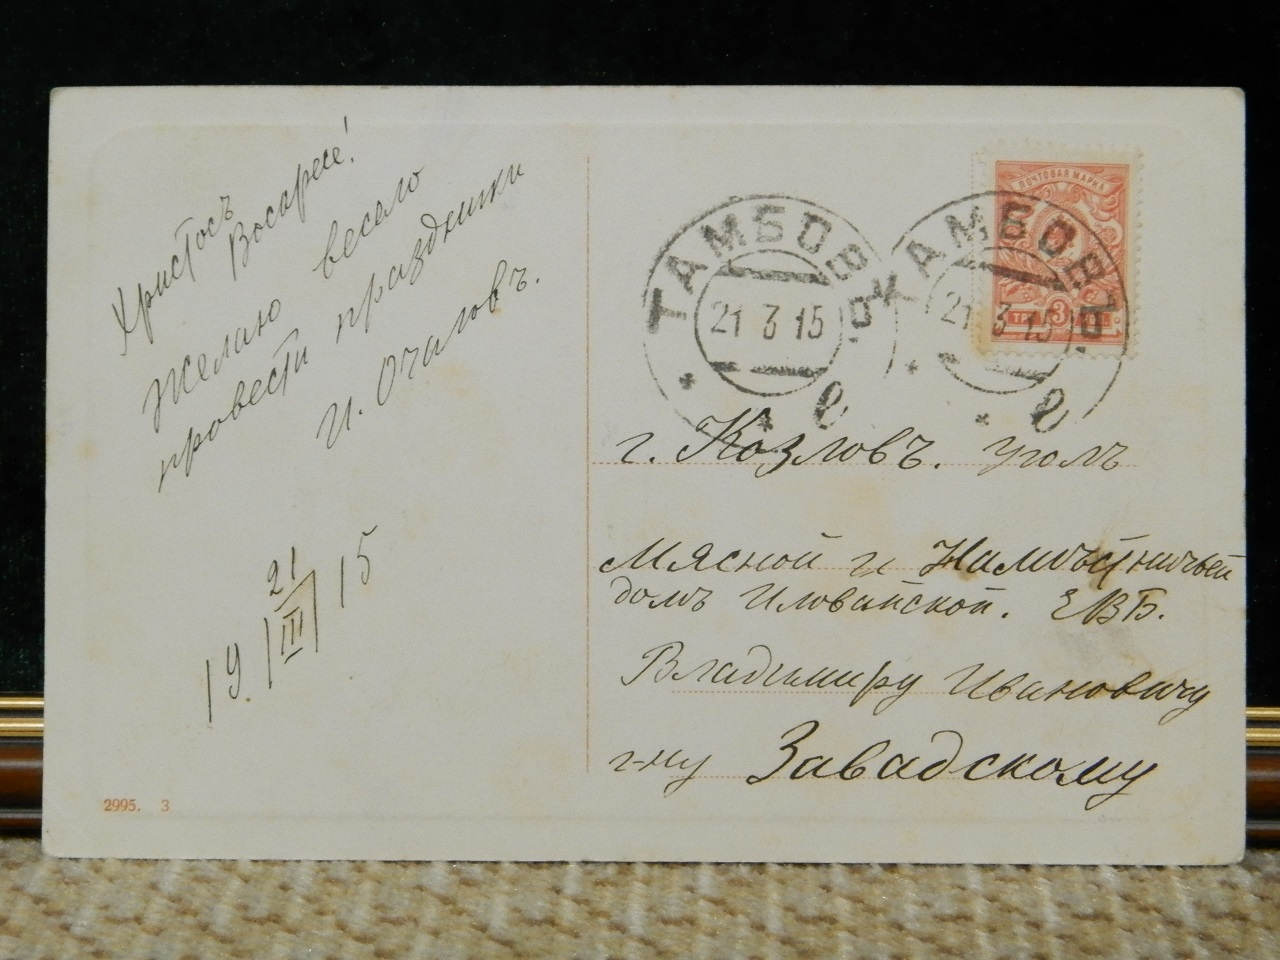 Христосъ
Воскресе!
Желаю весело
провести праздники
И. Очаловъ.
19 21/III 15
2995. 3
ПОЧТОВАЯ МАРКА
3
ТРИ КОП.
ТАМБОВЪ
21 3 15
е
ТАМБОВЪ
21 3 15
е
г. Козловъ. уголъ
Мясной и Намѣстничьей
домъ Иловайской. ЕВБ.
Владимиру Ивановичу
г-ну Завадскому